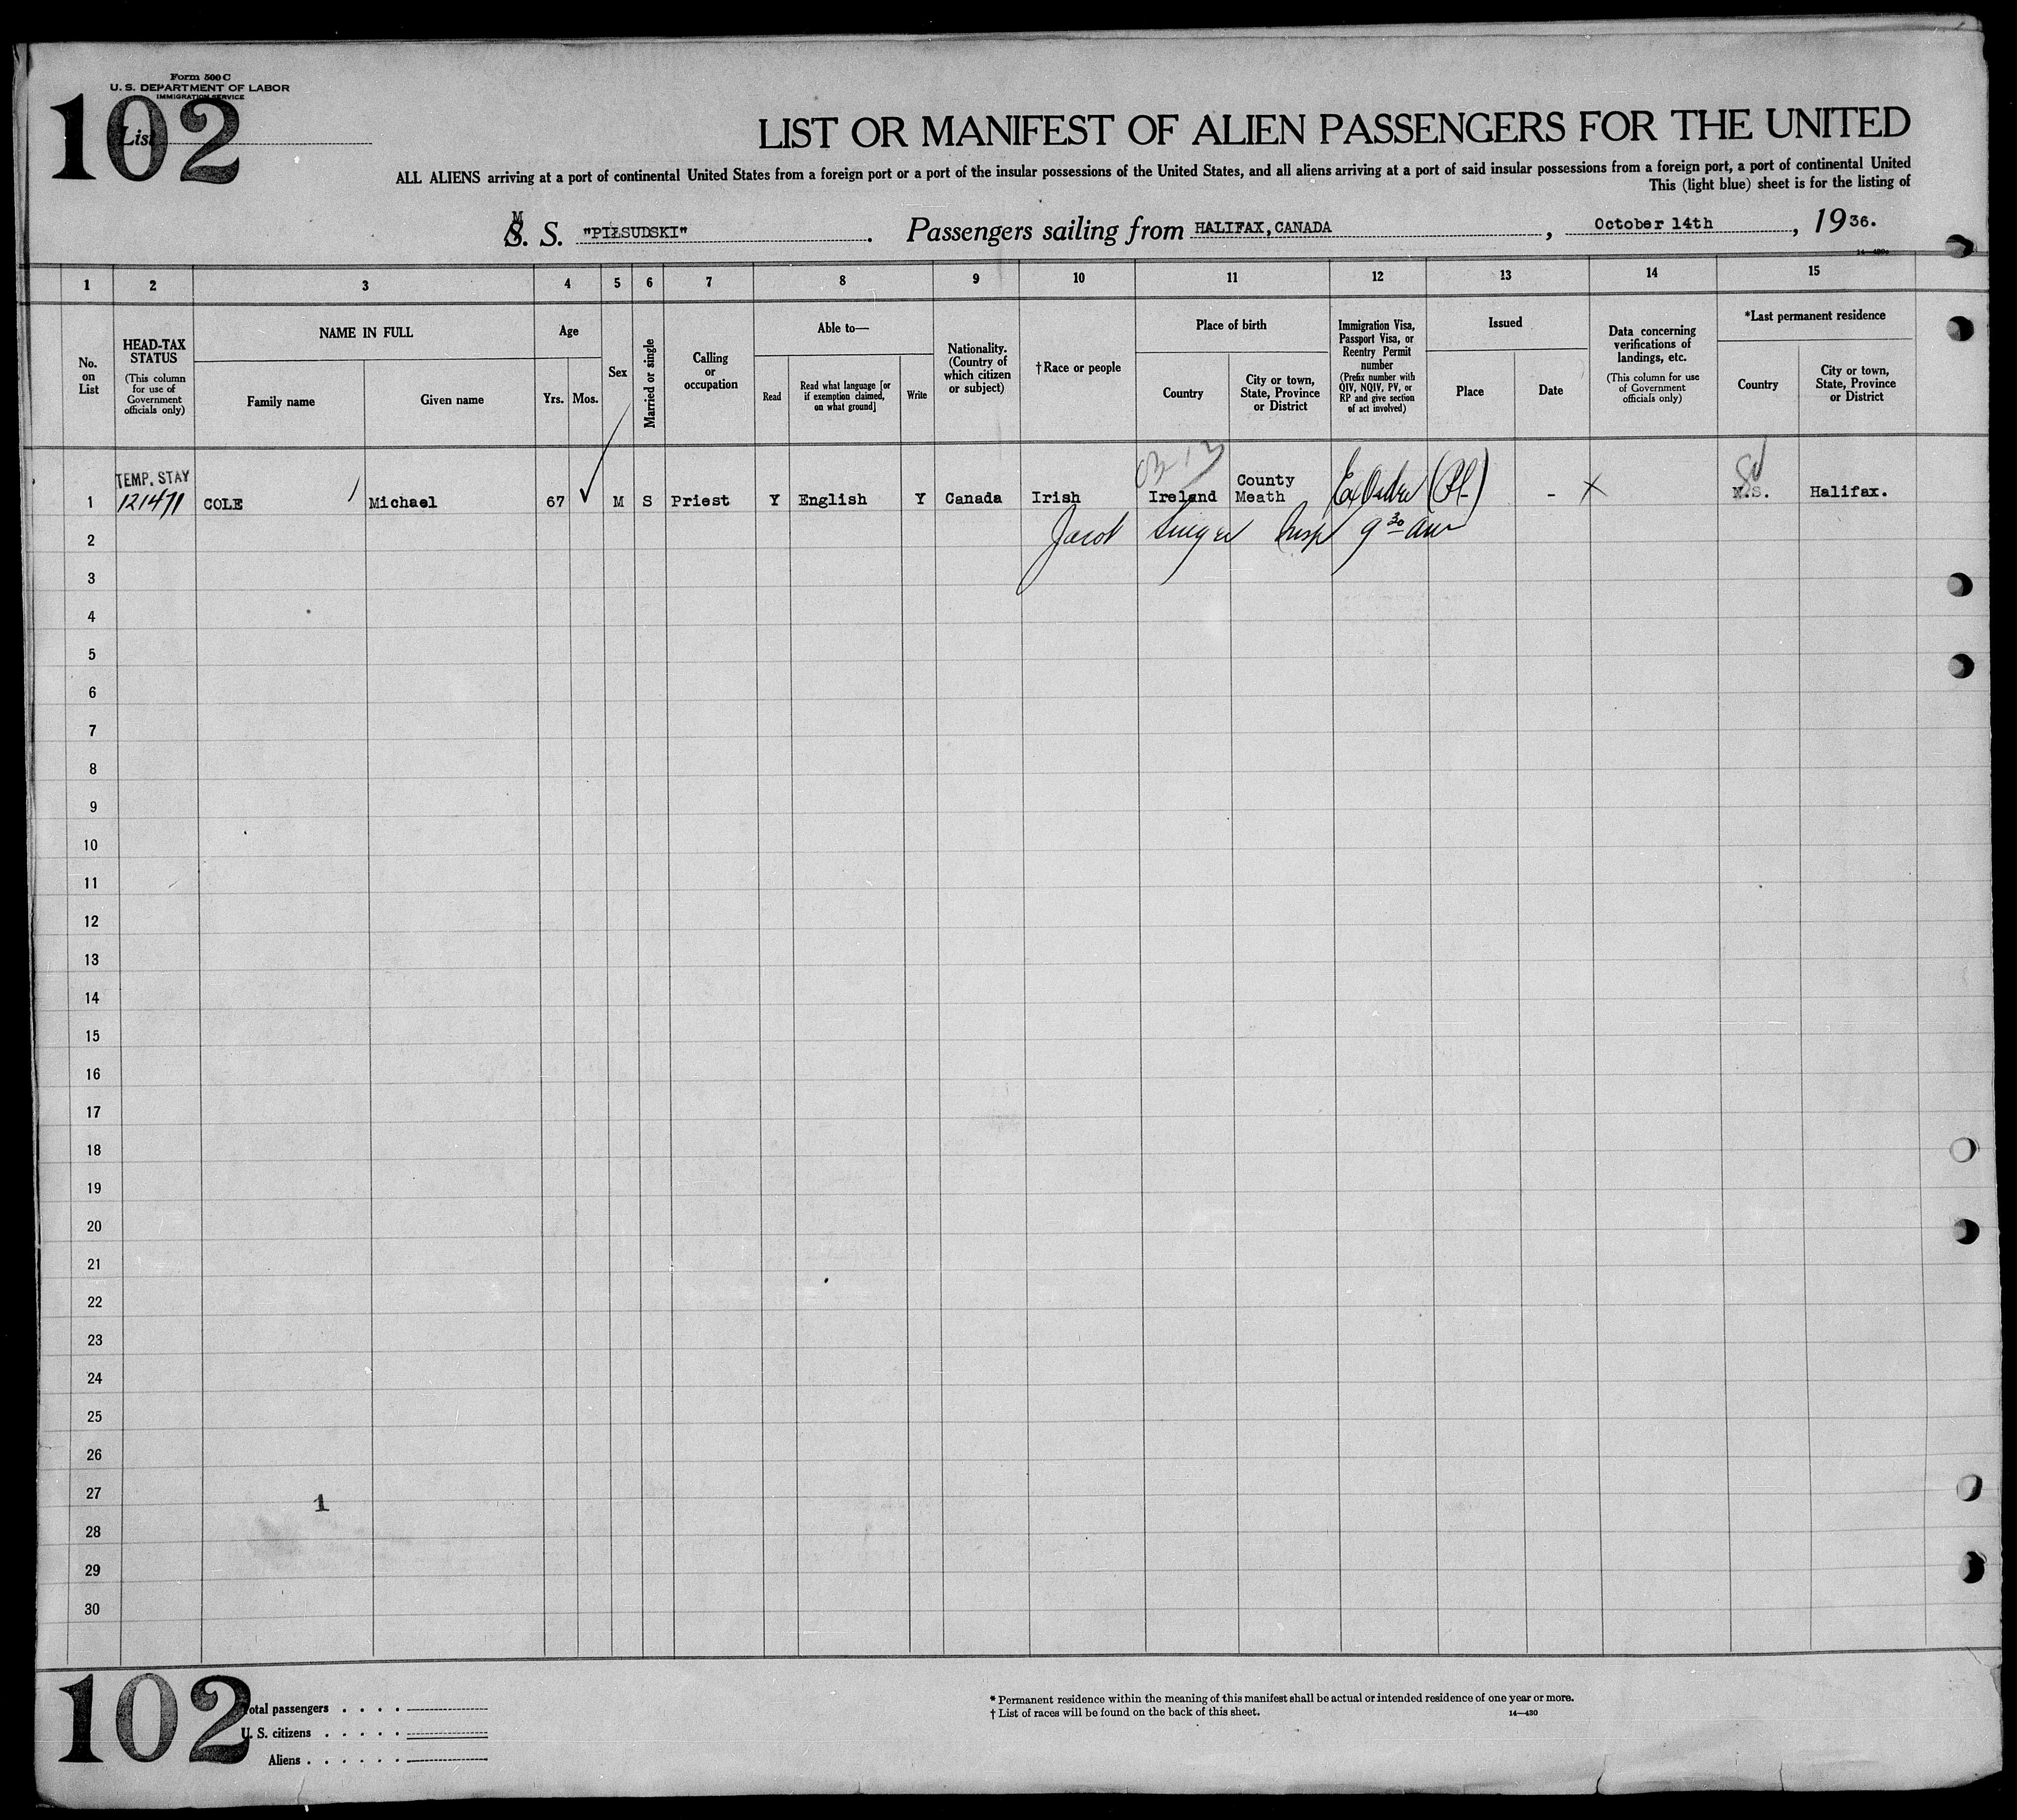 Form 500 C
U. S. DEPARTMENT OF LABOR
IMMIGRATION SERVICE
List
102
LIST OR MANIFEST OF ALIEN PASSENGERS FOR THE UNITED
ALL ALIENS arriving at a port of continental United States from a foreign port or a port of the insular possessions of the United States, and all aliens arriving at a port of said insular possessions from a foreign port, a port of continental United
This (light blue) sheet is for the listing of
M
S. S. "PIŁSUDSKI". Passengers sailing from HALIFAX, CANADA, October 14th, 1936.
1 2 3 4 5 6 7 8 9 10 11 12 13 14 15
No. on List
HEAD-TAX STATUS
(This column for use of Government officials only)
NAME IN FULL
Family name
Given name
Age
Yrs. Mos.
Sex
Married or single
Calling or occupation
Able to—
Read
Read what language [or if exemption claimed, on what ground]
Write
Nationality. (Country of which citizen or subject)
†Race or people
Place of birth
Country
City or town, State, Province or District
Immigration Visa, Passport Visa, or Reentry Permit number
(Prefix number with QIV, NQIV, PV, or RP and give section of act involved)
Issued
Place
Date
Data concerning verifications of landings, etc.
(This column for use of Government officials only)
*Last permanent residence
Country
City or town, State, Province or District
TEMP. STAY
1 COLE Michael 67 M S Priest Y English Y Canada Irish Ireland County Meath (Pl-) - X N.S. Halifax.
2 Jacob Singer Insp 9 30 am
3
4
5
6
7
8
9
10
11
12
13
14
15
16
17
18
19
20
21
22
23
24
25
26
27 1
28
29
30
102
Total passengers . . . .
U. S. citizens . . . . .
Aliens . . . . . .
* Permanent residence within the meaning of this manifest shall be actual or intended residence of one year or more.
† List of races will be found on the back of this sheet. 14—430